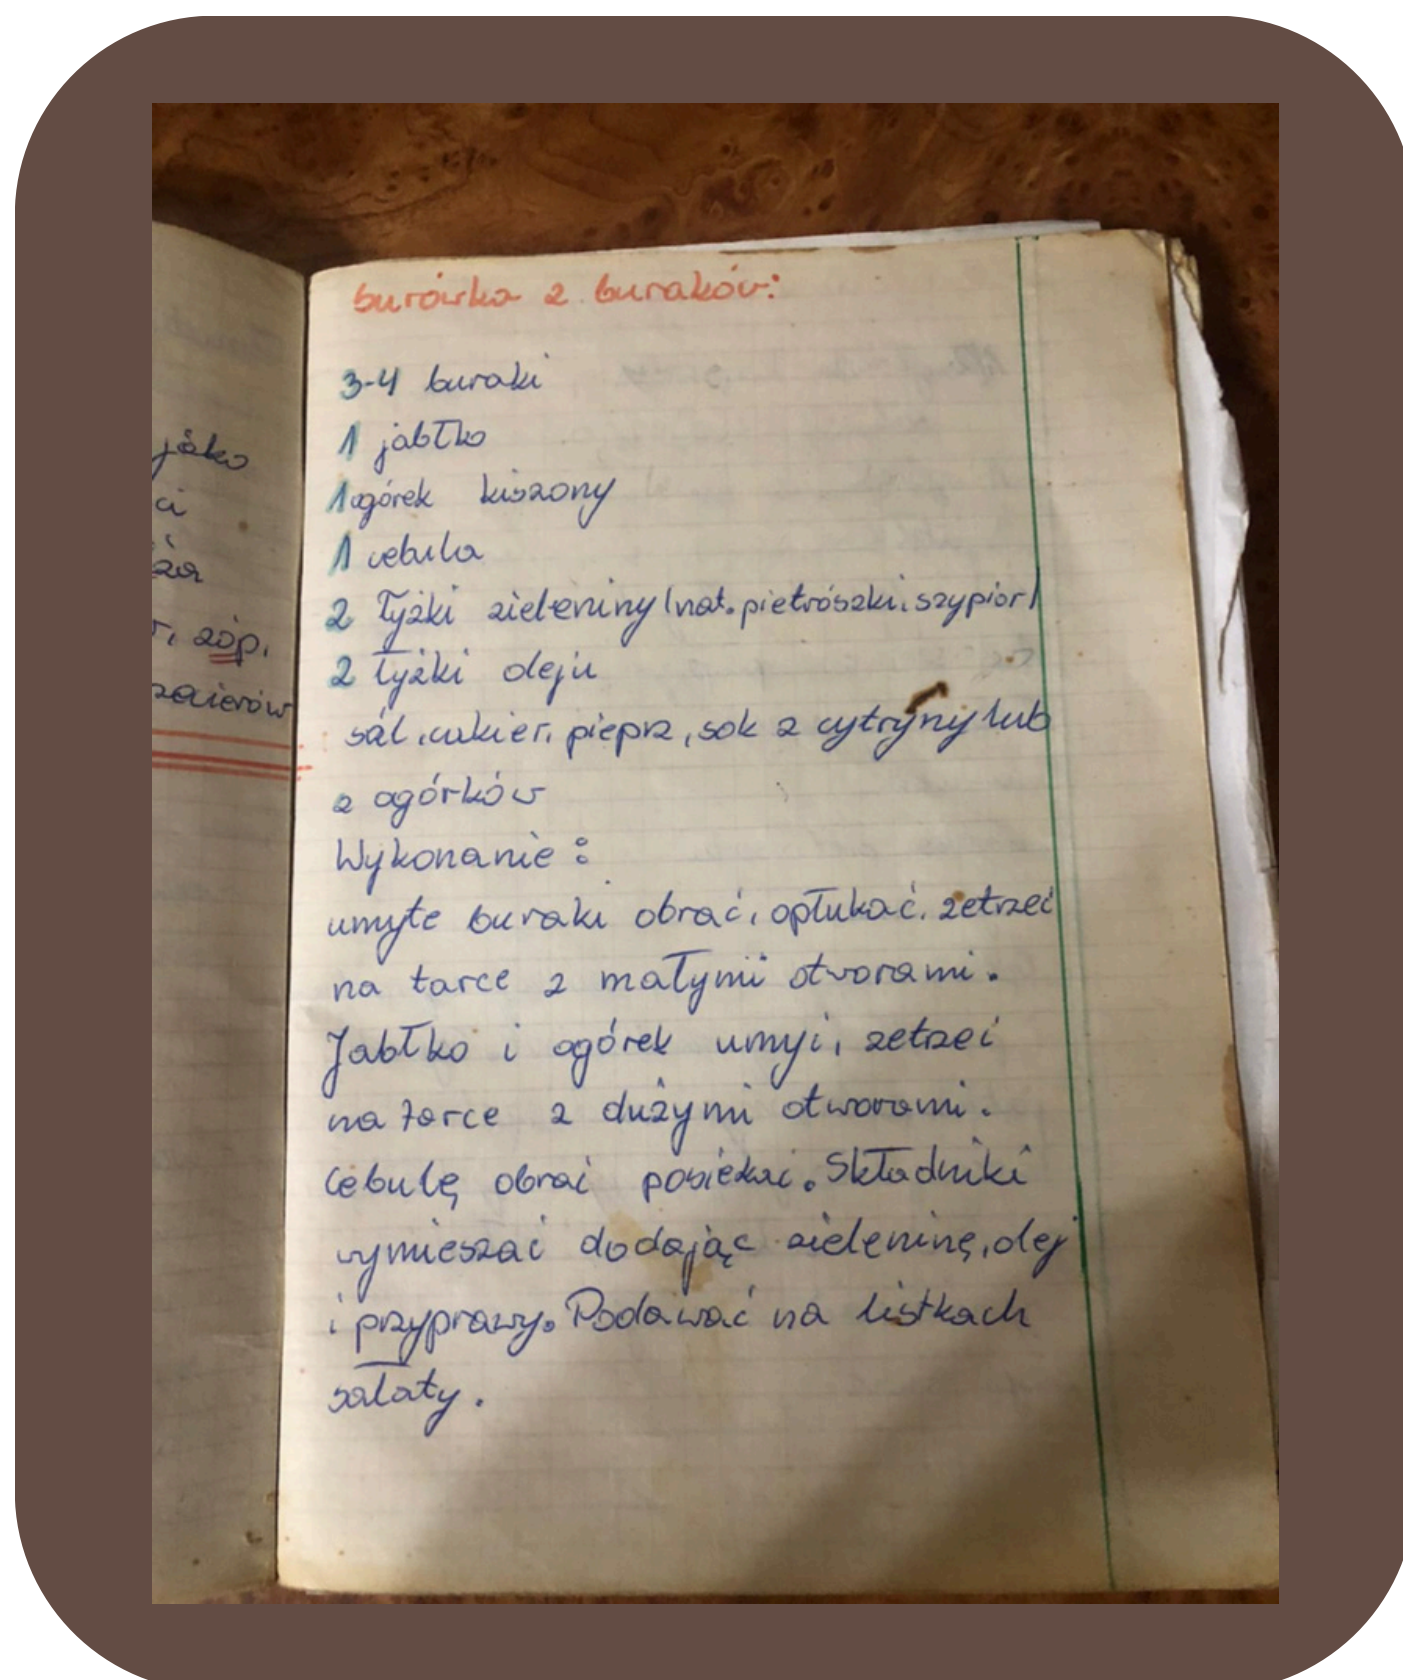 jako
ci
ża
r, zóp.
zacierów
burówka z buraków:
3-4 buraki
1 jabłko
1 ogórek kiszony
1 cebula
2 łyżki zieleniny (nat. pietrószki, szypiór)
2 łyżki oleju
sól, cukier, pieprz, sok z cytryny lub
z ogórków
Wykonanie:
umyte buraki obrać, opłukać, zetrzeć
na tarce z małymi otworami.
Jabłko i ogórek umyć, zetrzeć
na tarce z dużymi otworami.
Cebulę obrać posiekać. Składniki
wymieszać dodając zieleninę, olej
i przyprawy. Podawać na listkach
sałaty.